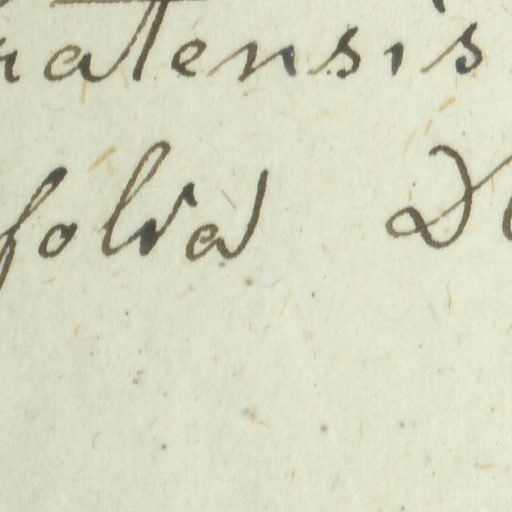 ratensis
folia D